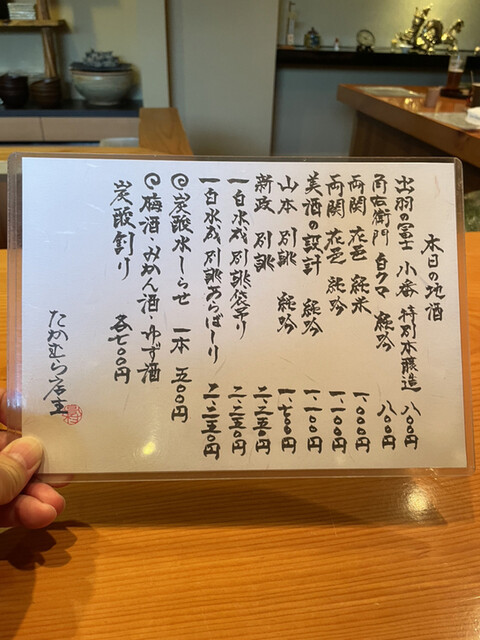 本日の地酒
出羽の冨士 小番 特別本醸造 八〇〇円
角右衛門 白クマ 純吟 八〇〇円
両関 花邑 純米 一、〇〇〇円
両関 花邑 純吟 一、一〇〇円
美酒の設計 純吟 一、一〇〇円
山本 別誂 純吟 一、七〇〇円
新政 別誂 二、二五〇円
一白水成 別誂袋吊り 二、二五〇円
一白水成 別誂あらばしり 二、二五〇円
炭酸水しらせ 一本 五〇〇円
梅酒・みかん酒・ゆず酒
炭酸割り 各七〇〇円
たかむら店主